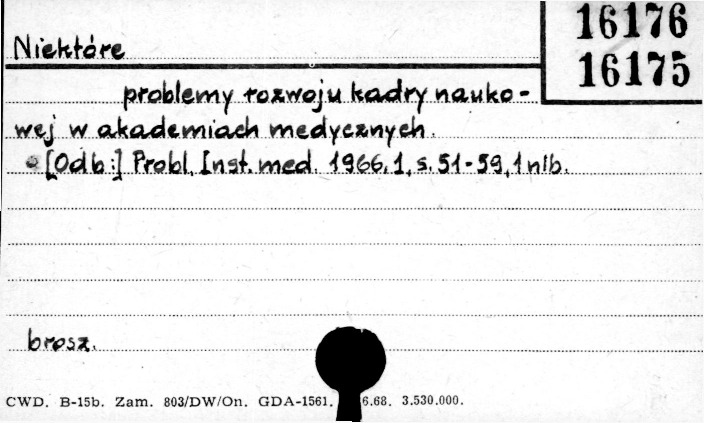 16176
Niektóre
16175
problemy rozwoju kadry nauko-
wej w akademiach medycznych.
[Odb:] Probl. Inst. med. 1966, 1, s. 51-59, 1 nlb.
brosz.
CWD. B-15b. Zam. 803/DW/On. GDA-1561. 6.68. 3.530.000.